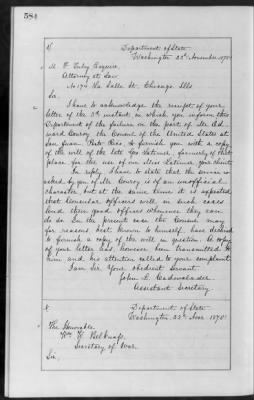 584
Department of State
Washington 22d November 1875
M. F. Tuley Esquire,
Attorney at Law
No 174 La Salle St. Chicago Ills
Sir,
I have to acknowledge the receipt of your
letter of the 3d instant in which you inform this
Department of the failure on the part of Mr. Ed-
ward Conroy the Consul of the United States at
San Juan Porto Rico to furnish you with a copy
of the will of the late Geo Latimer, formerly of that
place for the use of one Miss Latimer your client.
In reply, I have to state that the service
asked by you of Mr. Conroy is of an unofficial
character but at the same time it is expected
that Consular officers will in such cases
lend their good offices whenever they can
do so. In the present case the Consul may
for reasons best known to himself, have declined
to furnish a copy of the will in question. A copy
of your letter has however been transmitted to
him and his attention called to your complaint.
I am Sir Your obedient Servant
John L. Cadwalader
Assistant Secretary.
Department of State
Washington, 22d Nov 1875
The Honorable
Wm W. Belknap,
Secretary of War
Sir,